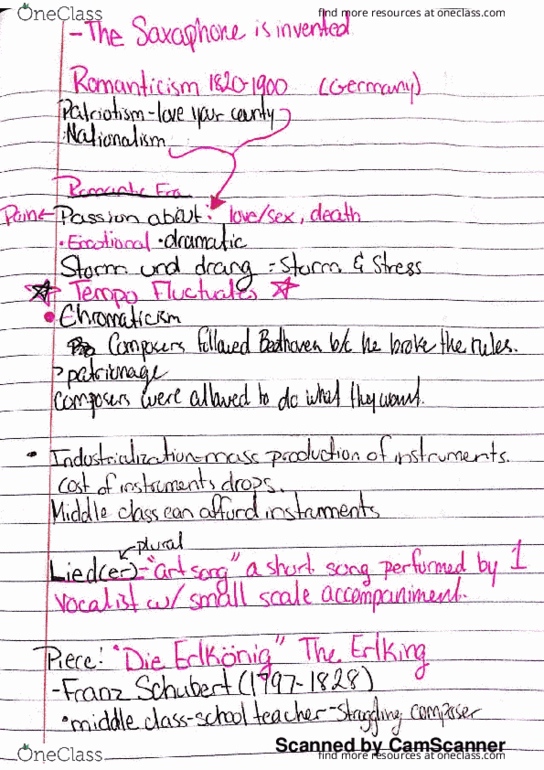 OneClass
find more resources at oneclass.com
- The Saxaphone is invented
Romanticism 1820-1900 (Germany)
Patriotism - love your county
Nationalism
Romantic Era
Pain ← Passion about: love/sex, death
• Emotional • dramatic
Storm und drang = Storm & Stress
☆ Tempo Fluctuates ☆
• Chromaticism
Composers followed Beethoven b/c he broke the rules.
> patrionage
Composers were allowed to do what they want.
• Industrialization-mass production of instruments.
cost of instruments drops.
Middle class can afford instruments
plural
Lied(er) = "art song" a short song performed by 1
vocalist w/ small scale accompaniment.
Piece: "Die Erlkönig" The Erlking
- Franz Schubert (1797-1828)
• middle class-school teacher-struggling composer
Scanned by CamScanner
OneClass
find more resources at oneclass.com